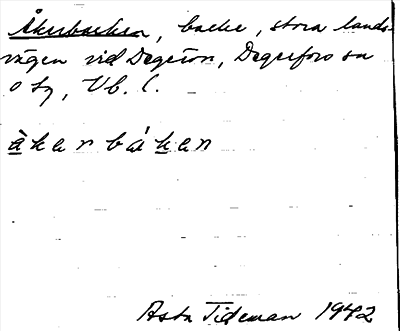 Åkerbacken, backe, stora lands-
vägen vid Degerön, Degerfors sn
o sg, Vb. l.
àkerbákan
Asta Tideman 1942